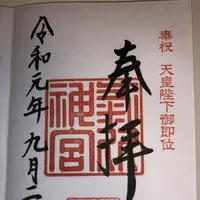 奉祝 天皇陛下御即位
奉拝
令和元年九月二